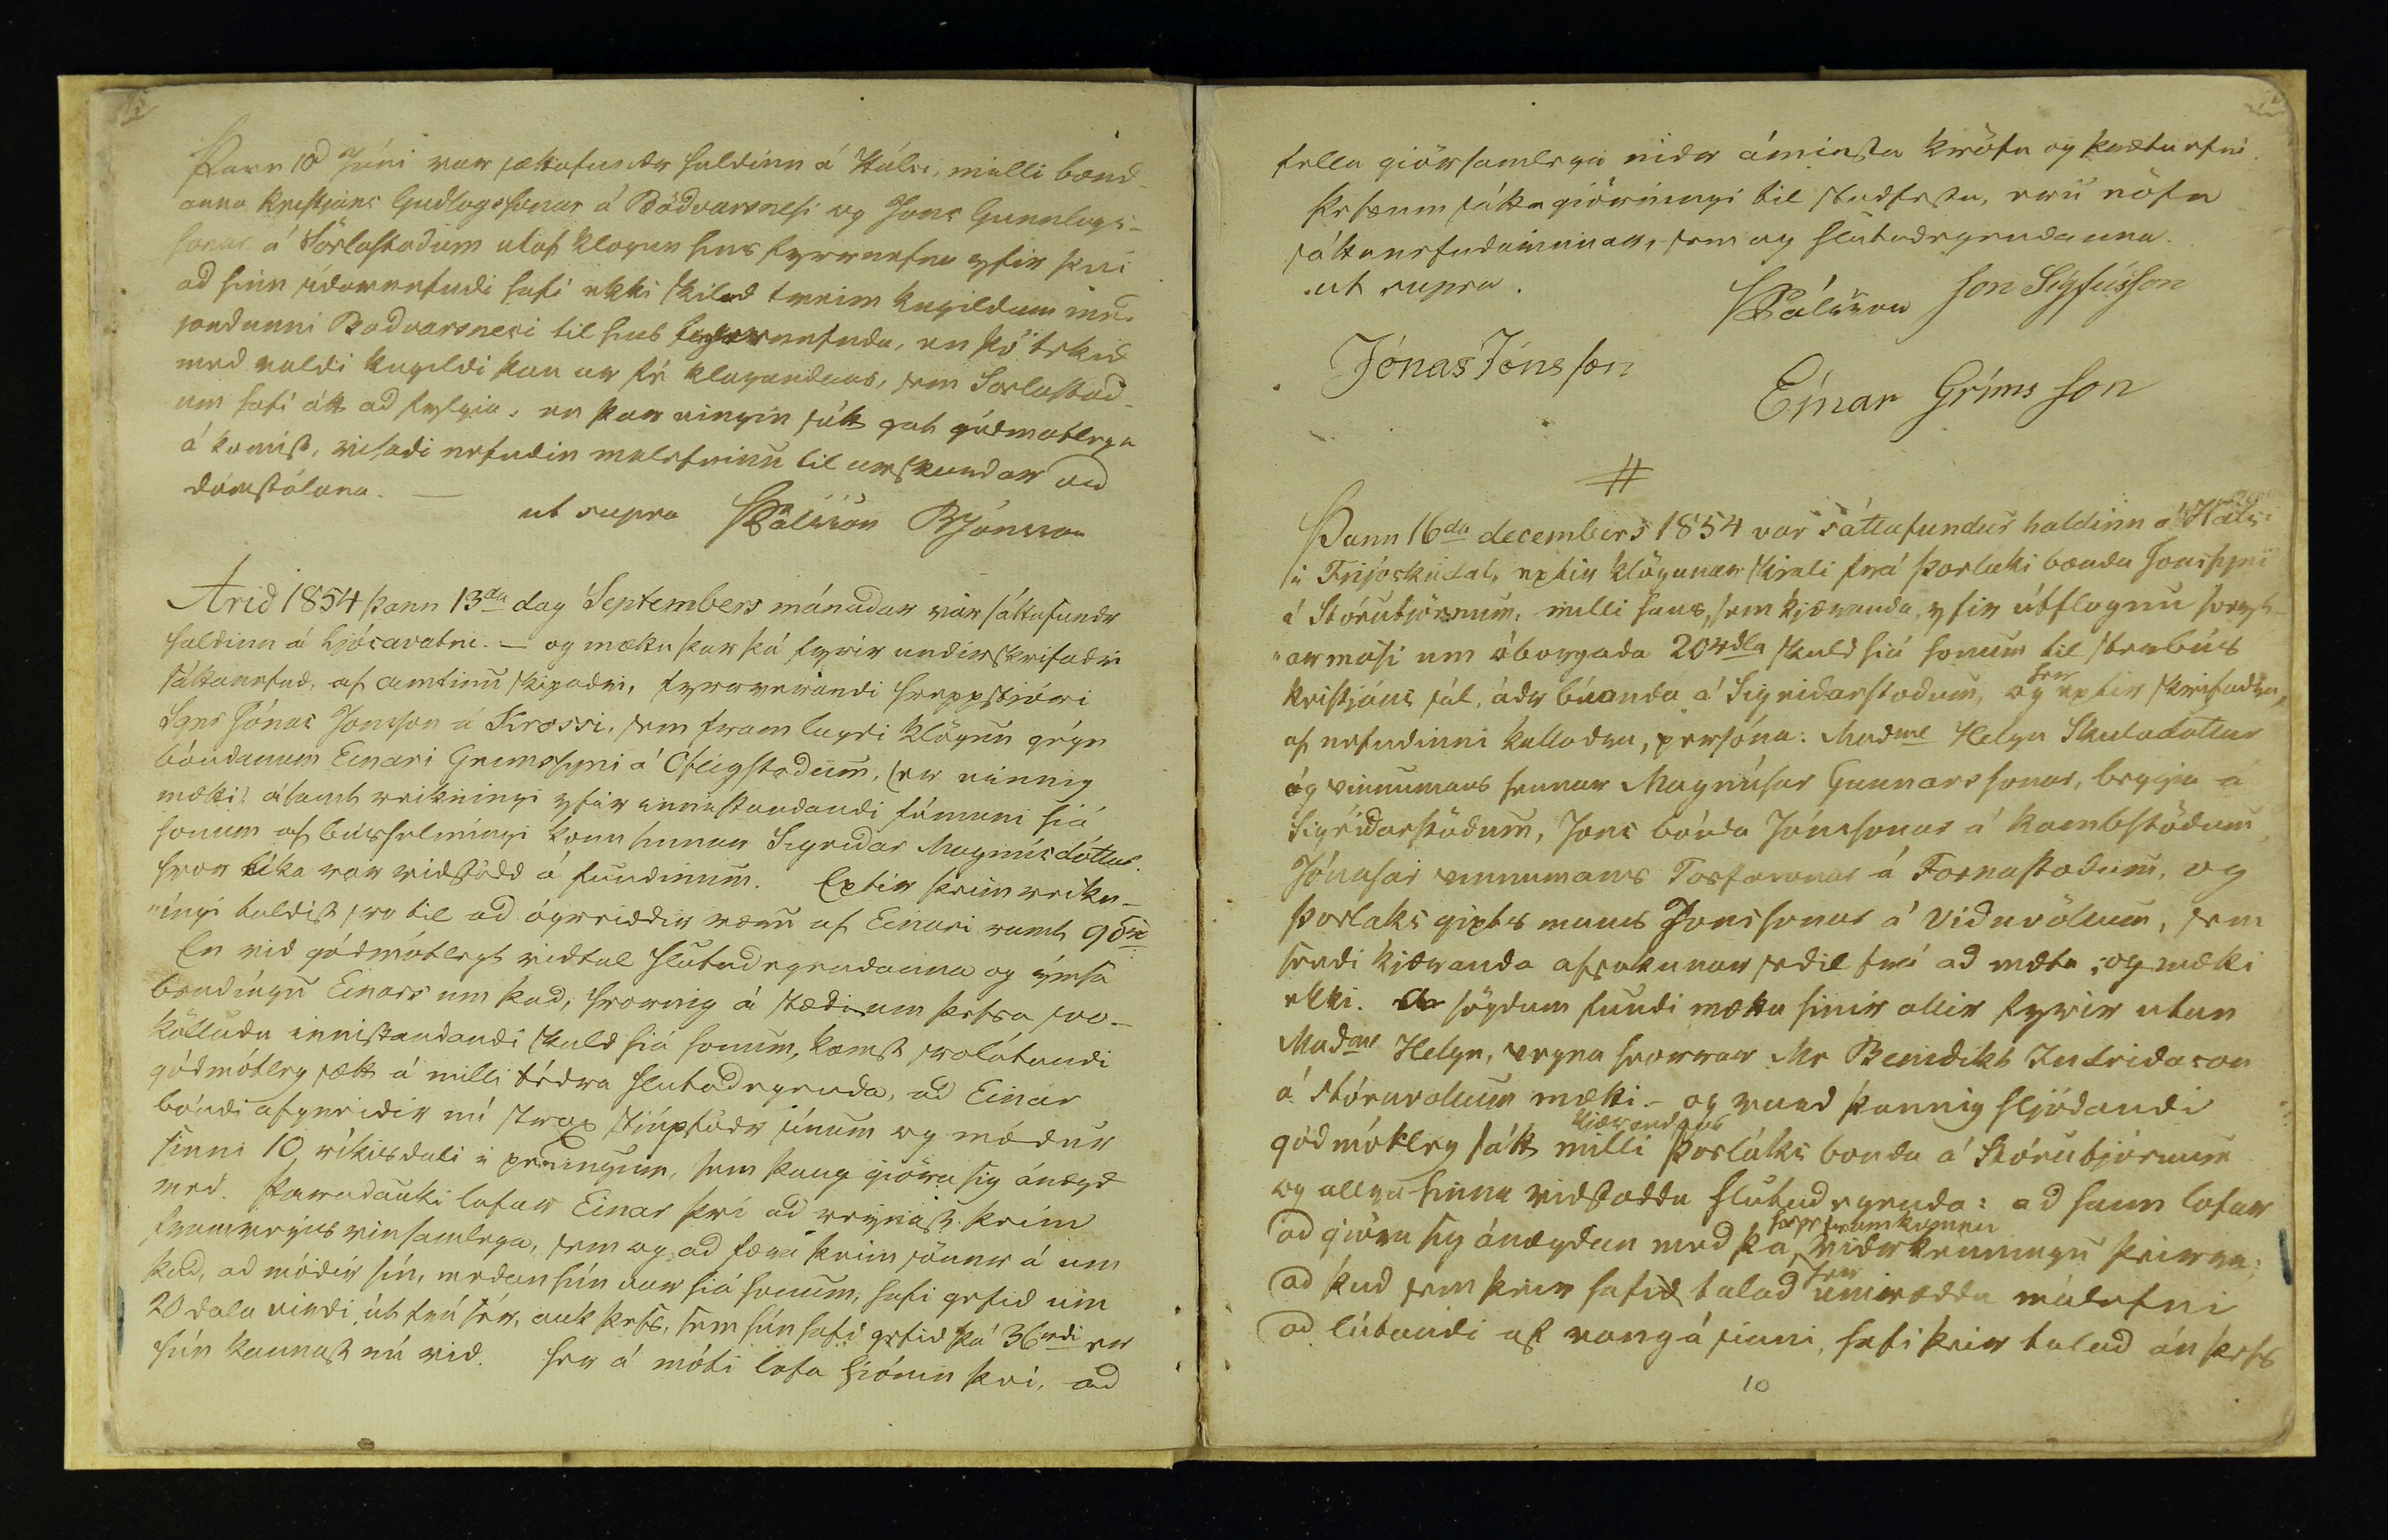 Þann 10d Júni var sættafundr haldinn á Hálsi, milli bænd-
anna Kristjáns Gudlogssonar á Bödvarsnesi og Jons Gunnlogs-
sonar á Sörlastödum utaf klögun hins fyrrnefna yfir því
ad hinn sídarnefndi hafi ekki skilad tveim kugildum med
jördunni Bodvarsnesi til hins fyrrnefnda, en þó tekid
med valdi kugildi þau af fé klagandans, sem Sorlastöd-
um hafi átt ad fylgia. en þar eingin sátt gat gódmótlega
á komist, vísadi nefndin malefninu til urskurdar vid
dómstólana. —
ut supra SPálsson BJónsson
Arid 1854 þann 13da dag Septembers mánadar var sáttafundr
haldinn á Ljósavatni. — og mættu þar þá fyrir undirskrifadri
sáttanefnd, af amtinu skipadri, fyrrverandi hreppstjóri
Sgnr Jónas Jonsson á Krossi, sem fram lagdi klögun gégn
bóndanum Einari Grimssyni á Ófeigstodum, (er einnig
mætti) ásamt reikningi yfir innistandandi fémuni hiá
honum af búshelmíngi konu sinnar Sigridar Magnúsdóttur.
hvor líka var vidstödd á fundinum. Eptir þeim reikn-
"íngi taldist svo til ad ógreiddir væru af Einari samt 90rd
En vid gódmótlegt vidtal hlutadegendanna og ýmsa
bendíngu Einars um þad, hvornig á stædi um þessa svo-
kölludu innistandandi skuld hiá honum, komst svolátandi
gódmótleg sætt á milli tédra hlutadegenda, ad Einar
bóndi afgreidir nú strax stiúpfödr sínum og módur
sinni 10 ríkisdali i peningum, sem þaug gióra sig ánægd
med. Þaradauki lofar Einar því ad reynast þeim
framvegis vinsamlega, sem og ad færa þeim sönnr á um
þad, ad módir sín, medan hún var hiá honum, hafi gefid um
20 dala virdi út frá sér, auk þess, sem hún hafi gefid þá 36rdi er
hún kannast nú vid. Her á móti lofa hiónin því, ad
falla giörsamlega nidr áminsta kröfu og þrætuefni.
Þessum sáttagiörningi til stadfestu, eru nöfn
sáttanefndarinnar, sem og hlutadegendanna.
ut supra. SPálsson Jon Sigfússon
Jónas Jónsson
Einar Gríms son
#
Þann 16da decembers 1854 var sáttafundur haldinn á Hálsi
i Fnjóskadal, eptir klögunar skjali frá Þorlaki bonda Jonssyni
á Stórutjörnum, milli hans, sem kjæranda, yfir útflognu horgt-
"ármási um óborgada 204dla skuld hiá honum til sterbús
Kristjáns sál. ádr búanda á Sigridarstodum, og her eptir skrifadra,
af nefndinni kalladra, persóna: Madme Helgu Skuladottur
og vinnumans hennar Magnúsar Gunnarssonar, beggja á
Sigrídarstödum, Jons bónda Jónssonar á Kambstödum,
Jónasar vinnumans Tosfasonar á Fornastodum, og
Þorlaks gipts manns Jonssonar á Vidivöllum, sem
sendi kjæranda afsokunar sedil frá ad mæta, og mætti
ekki. A sögdum fundi mættu hinir allir fyrir utan
Madme Helgu, vegna hvorrar Mr Benidikt Indridason
á Stóruvollum mætti – og vard þannig hljódandi
gódmótleg sátt milli kjærandans Þorláks bonda á Stórutjörnum
og allra hinna vidstoddu hlutadegenda: ad hann lofar
ad gióra sig ánægdan med þa her framkomnu vidrkenningu þeirra:
ad þad sem þeir hafid talad her umrædda málefni
ad lútandi af rangá sinni, hafi þeir talad án þess
10